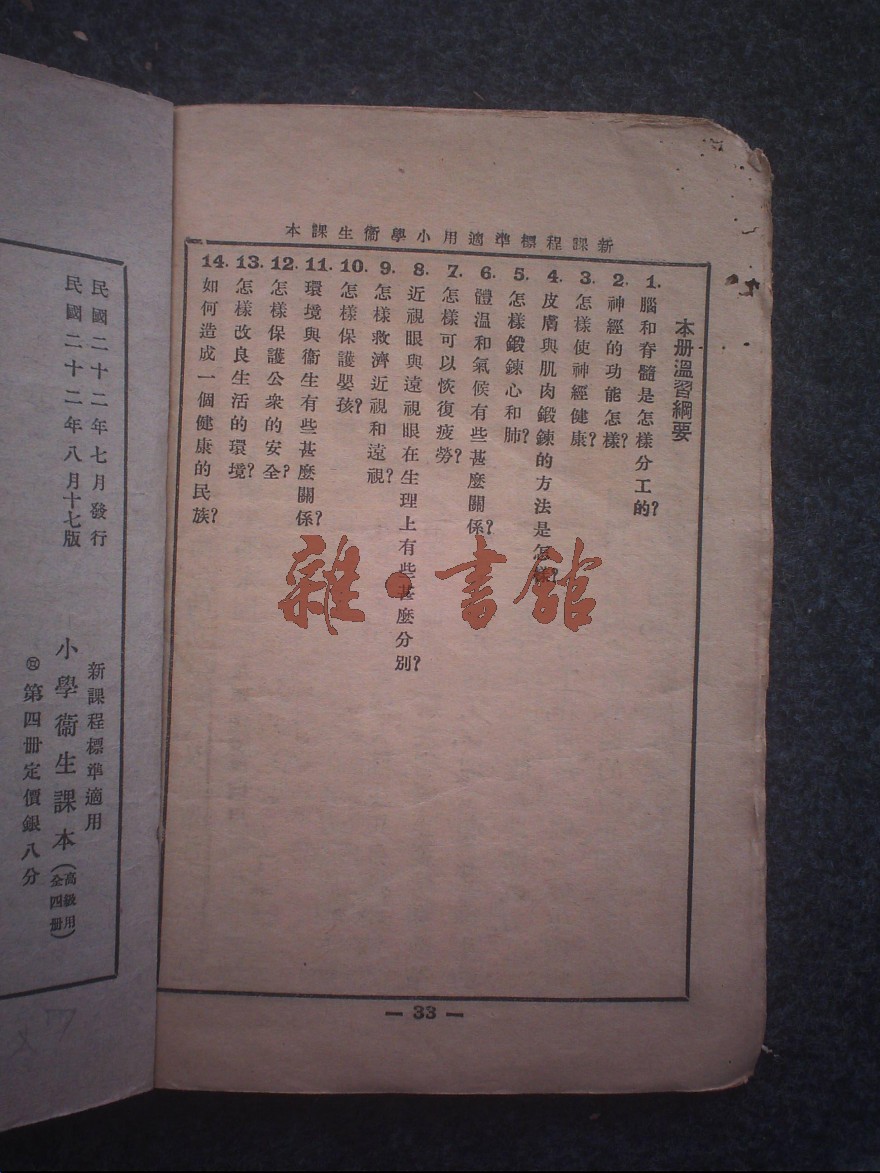 新課程標準適用小學衞生課本
本册溫習綱要
1. 腦和脊髓是怎樣分工的?
2. 神經的功能怎樣?
3. 怎樣使神經健康?
4. 皮膚與肌肉鍛鍊的方法是怎樣?
5. 怎樣鍛鍊心和肺?
6. 體溫和氣候有些甚麼關係?
7. 怎樣可以恢復疲勞?
8. 近視眼與遠視眼在生理上有些甚麼分別?
9. 怎樣救濟近視和遠視?
10. 怎樣保護嬰孩?
11. 環境與衞生有些甚麼關係?
12. 怎樣保護公衆的安全?
13. 怎樣改良生活的環境?
14. 如何造成一個健康的民族?
— 33 —
雜·書館
民國二十二年七月發行
民國二十二年八月十七版
新課程標準適用
小學衞生課本(高級用全四册)
第四册定價銀八分